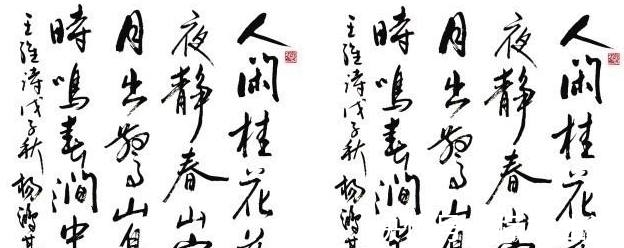 人闲桂花
夜静春山
月出驚山
時鳴春澗中
王维诗戊子秋杨
人闲桂花
夜静春山
月出驚山
時鳴春澗
王维诗戊子秋杨